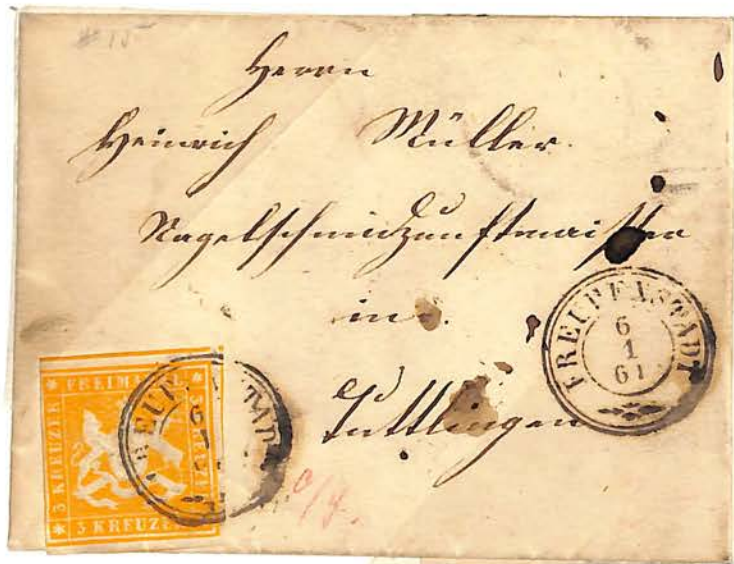 # 15
Herrn
Heinrich Müller
Nagelschmidzunftmeister
in
Tuttlingen
FREUDENSTADT
6
1
61
FREIMARKE
3 KREUZER
3 KREUZER
3 KREUZER
FREUDENSTADT
6
1